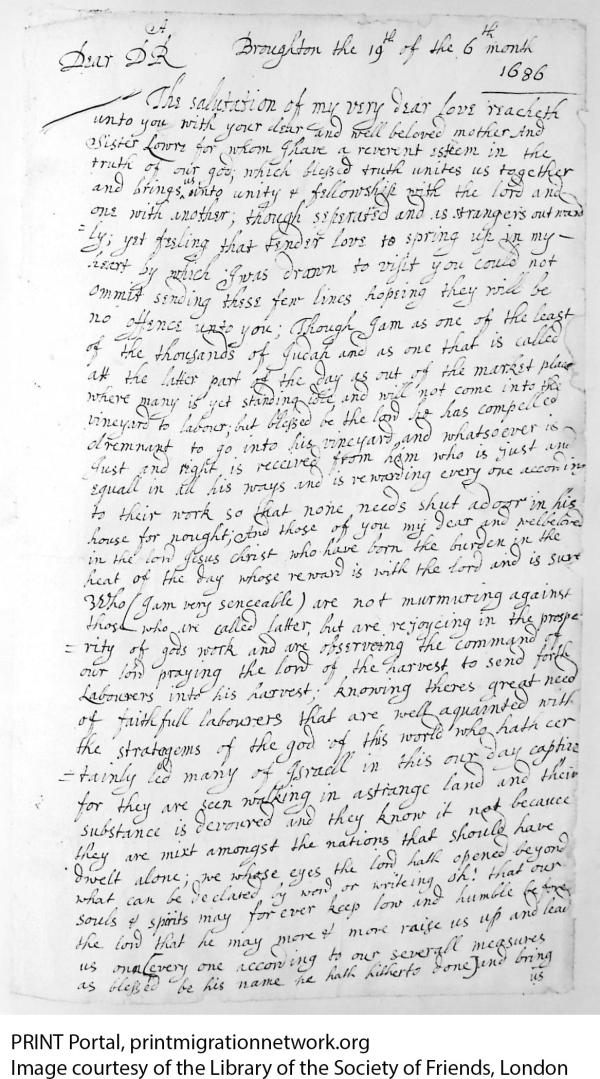 A
Dear D:R Broughton the 19th of the 6th month
1686
The salutation of my very dear Love reacheth
unto you with your dear and well beloved mother And
Sister Lowre for whom I have a reverent esteem in the
truth of our god; which blessed truth unites us together
and brings us into unity & fellowship with the lord and
one with another; though seperated and as strangers outward
=ly; yet feeling that tender love to spring up in my
heart by which I was drawn to visit you could not
ommit sending these few lines hopeing they will be
no offence unto you; Though I am as one of the least
of the thousands of Judah and as one that is called
att the latter part of the day as out of the market place
where many is yet standing idle and will not come into the
vineyard to labour; but blessed be the lord he has compelled
a remnant to go into his vineyard, and whatsoever is
just and right is received from him who is just and
equall in all his ways and is rewarding every one according
to their work so that none needs shut a door in his
house for nought; And those of you my dear and welbeloved
in the lord Jesus Christ who have born the burden in the
heat of the day whose reward is with the lord and is sure
Who (I am very senceable) are not murmuring against
those who are called latter, but are rejoycing in the prospe-
=rity of gods work and are observeing the command of
our lord praying the lord of the harvest to send forth
Labourers into his harvest; knowing theres great need
of faithfull labourers that are well aquainted with
the stratagems of the god of this world who hath cer
=tainly led many of Israell in this our day captive
for they are seen walking in a strange land and their
substance is devoured and they know it not because
they are mixt amongst the nations that should have
dwelt alone; we whose eyes the lord hath opened beyond
what can be declared by word or writeing oh! that our
souls & spirits may for ever keep low and humble before
the lord that he may more & more raise us up and lead
us on (every one according to our severall measures
as blessed be his name he hath hitherto done) and bring
us
PRINT Portal, printmigrationnetwork.org
Image courtesy of the Library of the Society of Friends, London